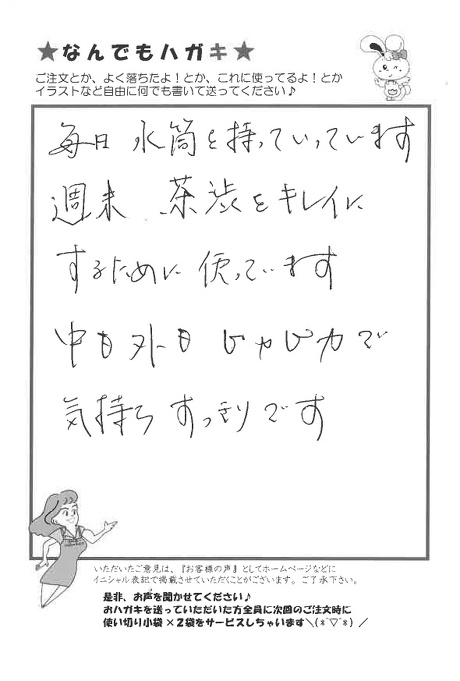 ★なんでもハガキ★
ご注文とか、よく落ちたよ！とか、これに使ってるよ！とか
イラストなど自由に何でも書いて送ってください♪
毎日 水筒を持っていっています
週末 茶渋をキレイに
するために 使っています
中も外も ピカピカで
気持ち すっきりです
いただいたご意見は、『お客様の声』としてホームページなどに
イニシャル表記で掲載させていただくことがございます。ご了承下さい。
是非、お声を聞かせてください♪
おハガキを送っていただいた方全員に次回のご注文時に
使い切り小袋×2袋をサービスしちゃいます＼(*ﾟ▽ﾟ*)／